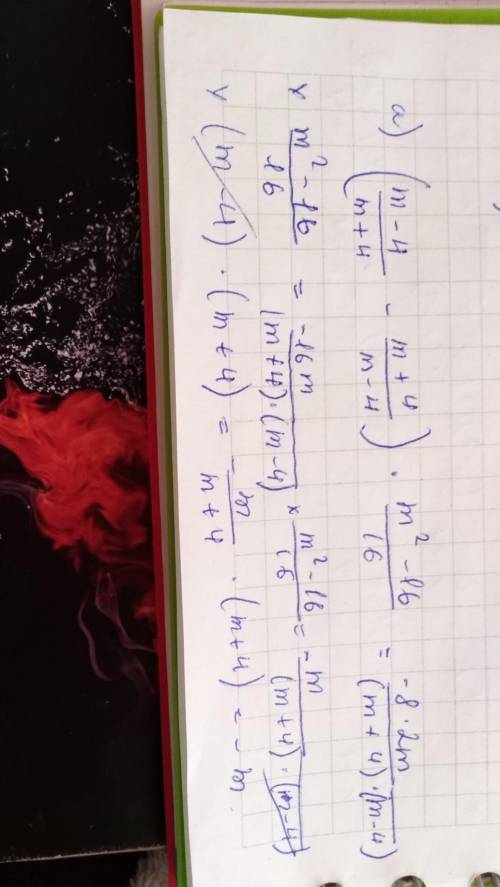 a) (m-4/m+4 - m+4/m-4) · m²-16/16 = -8·2m/(m+4)·(m-4)
× m²-16/16 = -16m/(m+4)·(m-4) × m²-16/16 = -m/(m+4)·(m-4)
× (m-4) · (m+4) = -m/m+4 · (m+4) = -m.